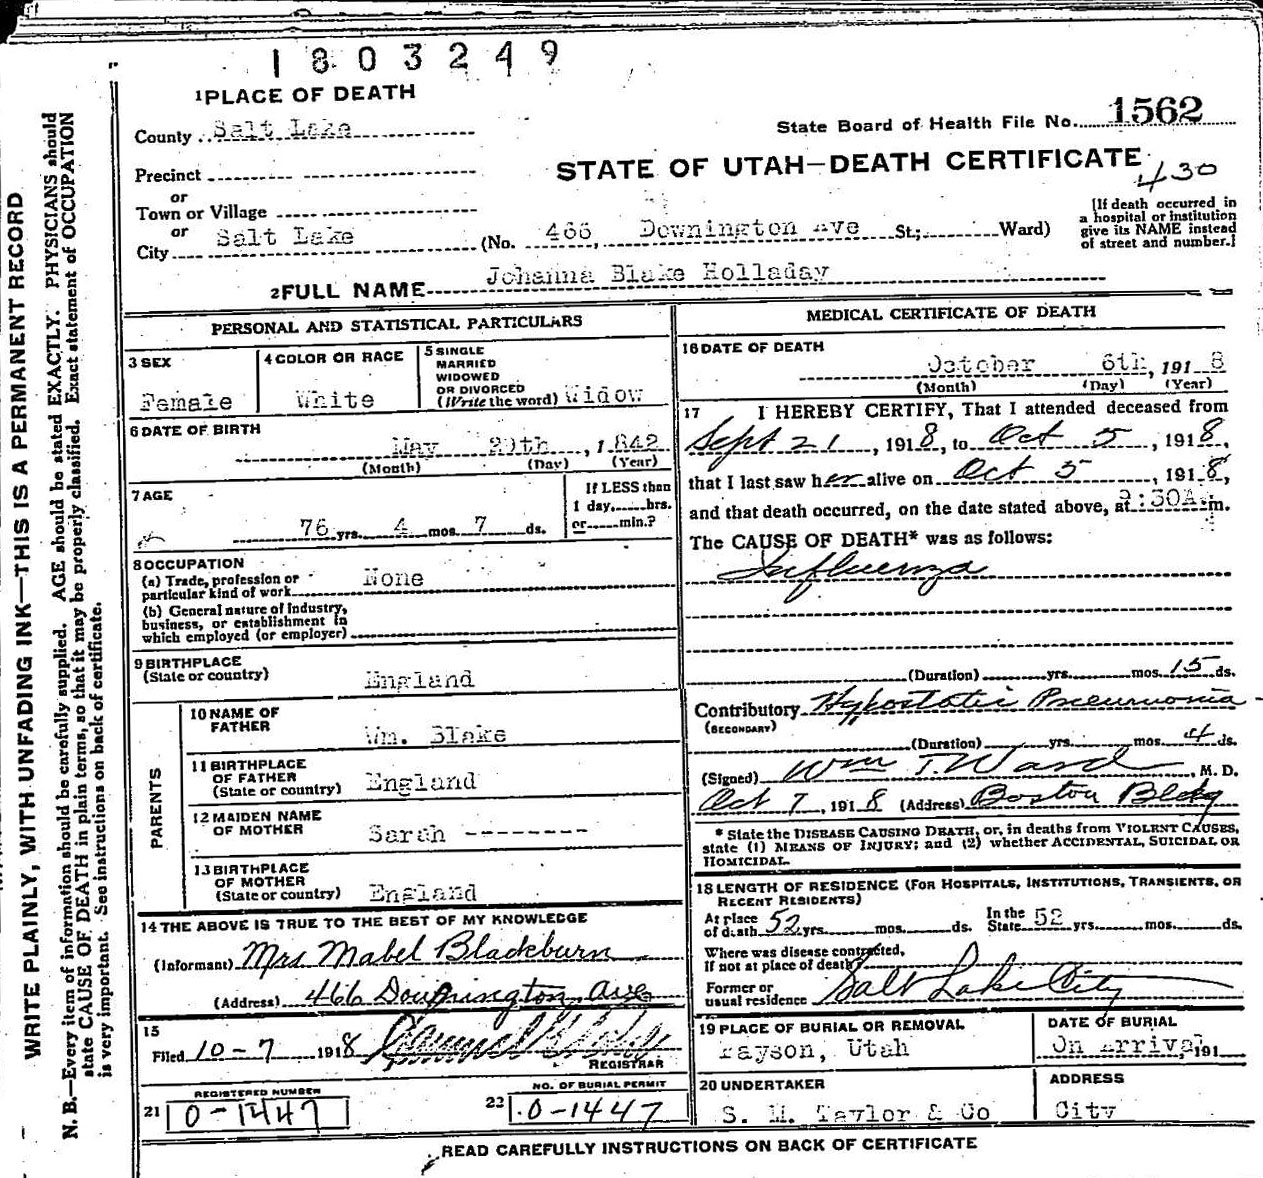 1803249
1PLACE OF DEATH
County Salt Lake
State Board of Health File No. 1562
STATE OF UTAH—DEATH CERTIFICATE
430
Precinct
or
Town or Village
or
City Salt Lake (No. 466, Downington Ave St.; Ward)
[If death occurred in
a hospital or institution
give its NAME instead
of street and number.]
2FULL NAME Johanna Blake Holladay
PERSONAL AND STATISTICAL PARTICULARS
3 SEX
Female
4 COLOR OR RACE
White
5 SINGLE
MARRIED
WIDOWED
OR DIVORCED
(Write the word) Widow
6 DATE OF BIRTH
May 29th, 1842
(Month) (Day) (Year)
7 AGE
76 yrs. 4 mos. 7 ds.
If LESS than
1 day, hrs.
or min.?
8 OCCUPATION
(a) Trade, profession or
particular kind of work None
(b) General nature of industry,
business, or establishment in
which employed (or employer)
9 BIRTHPLACE
(State or country) England
PARENTS
10 NAME OF
FATHER Wm. Blake
11 BIRTHPLACE
OF FATHER
(State or country) England
12 MAIDEN NAME
OF MOTHER Sarah --------
13 BIRTHPLACE
OF MOTHER
(State or country) England
14 THE ABOVE IS TRUE TO THE BEST OF MY KNOWLEDGE
(Informant) Mrs Mabel Blackburn
(Address) 466 Downington Ave
15
Filed 10-7 1918
REGISTRAR
REGISTERED NUMBER
21 0-1447
NO. OF BURIAL PERMIT
22 0-1447
MEDICAL CERTIFICATE OF DEATH
16 DATE OF DEATH
October 6th, 1918
(Month) (Day) (Year)
17 I HEREBY CERTIFY, That I attended deceased from
Sept 21, 1918, to Oct 5, 1918,
that I last saw her alive on Oct 5, 1918,
and that death occurred, on the date stated above, at :30A.m.
The CAUSE OF DEATH* was as follows:
Influenza
(Duration) yrs. mos. 15 ds.
Contributory Hypostatic Pneumonia
(SECONDARY)
(Duration) yrs. mos. 4 ds.
(Signed) Wm T. Ward, M. D.
Oct 7, 1918 (Address) Boston Bldg
* State the DISEASE CAUSING DEATH, or, in deaths from VIOLENT CAUSES,
state (1) MEANS OF INJURY; and (2) whether ACCIDENTAL, SUICIDAL OR
HOMICIDAL.
18 LENGTH OF RESIDENCE (FOR HOSPITALS, INSTITUTIONS, TRANSIENTS, OR
RECENT RESIDENTS)
At place
of death 52 yrs. mos. ds. In the
State 52 yrs. mos. ds.
Where was disease contracted,
if not at place of death?
Former or
usual residence Salt Lake City
19 PLACE OF BURIAL OR REMOVAL
Payson, Utah
DATE OF BURIAL
On Arrival, 191
20 UNDERTAKER
S. M. Taylor & Co
ADDRESS
City
READ CAREFULLY INSTRUCTIONS ON BACK OF CERTIFICATE
WRITE PLAINLY, WITH UNFADING INK—THIS IS A PERMANENT RECORD
N. B.—Every item of information should be carefully supplied. AGE should be stated EXACTLY. PHYSICIANS should
state CAUSE OF DEATH in plain terms, so that it may be properly classified. Exact statement of OCCUPATION
is very important. See instructions on back of certificate.